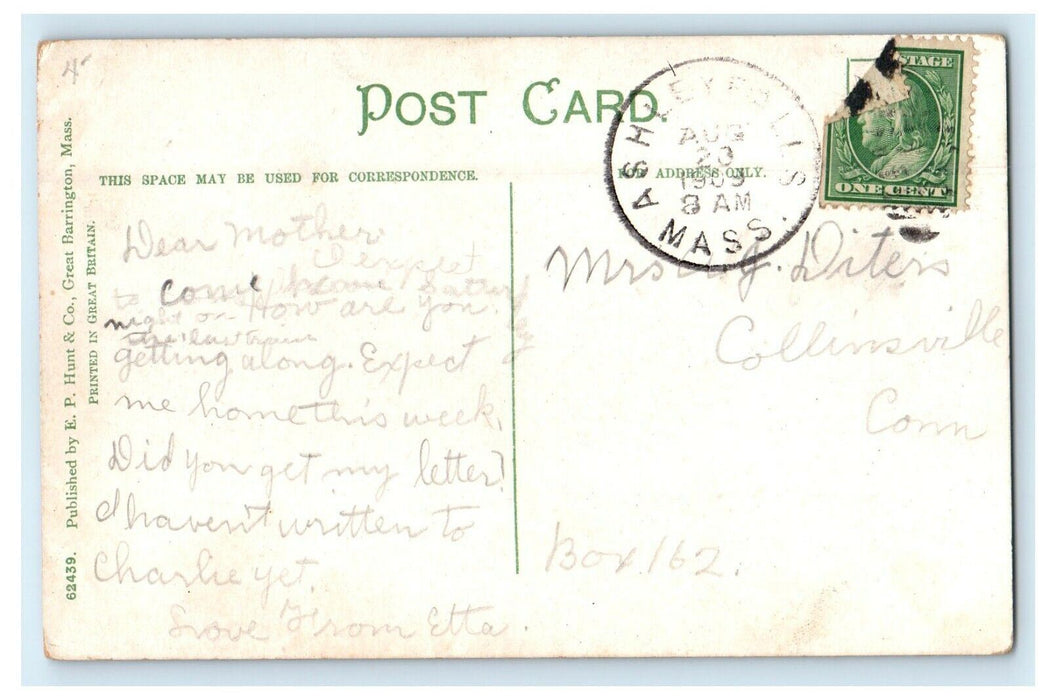 4
POST CARD.
THIS SPACE MAY BE USED FOR CORRESPONDENCE.
ADDRESS ONLY.
ASHLEY FALLS
AUG
23
1909
8 AM
MASS.
POSTAGE
ONE CENT
62439. Published by E. P. Hunt & Co., Great Barrington, Mass.
PRINTED IN GREAT BRITAIN.
Dear Mother
I expect
to come home Satur
night on
the last train
How are you
getting along. Expect
me home this week.
Did you get my letter?
I haven't written to
Charlie yet.
Love From Etta.
Mrs J. Diters
Collinsville
Conn
Box 162.